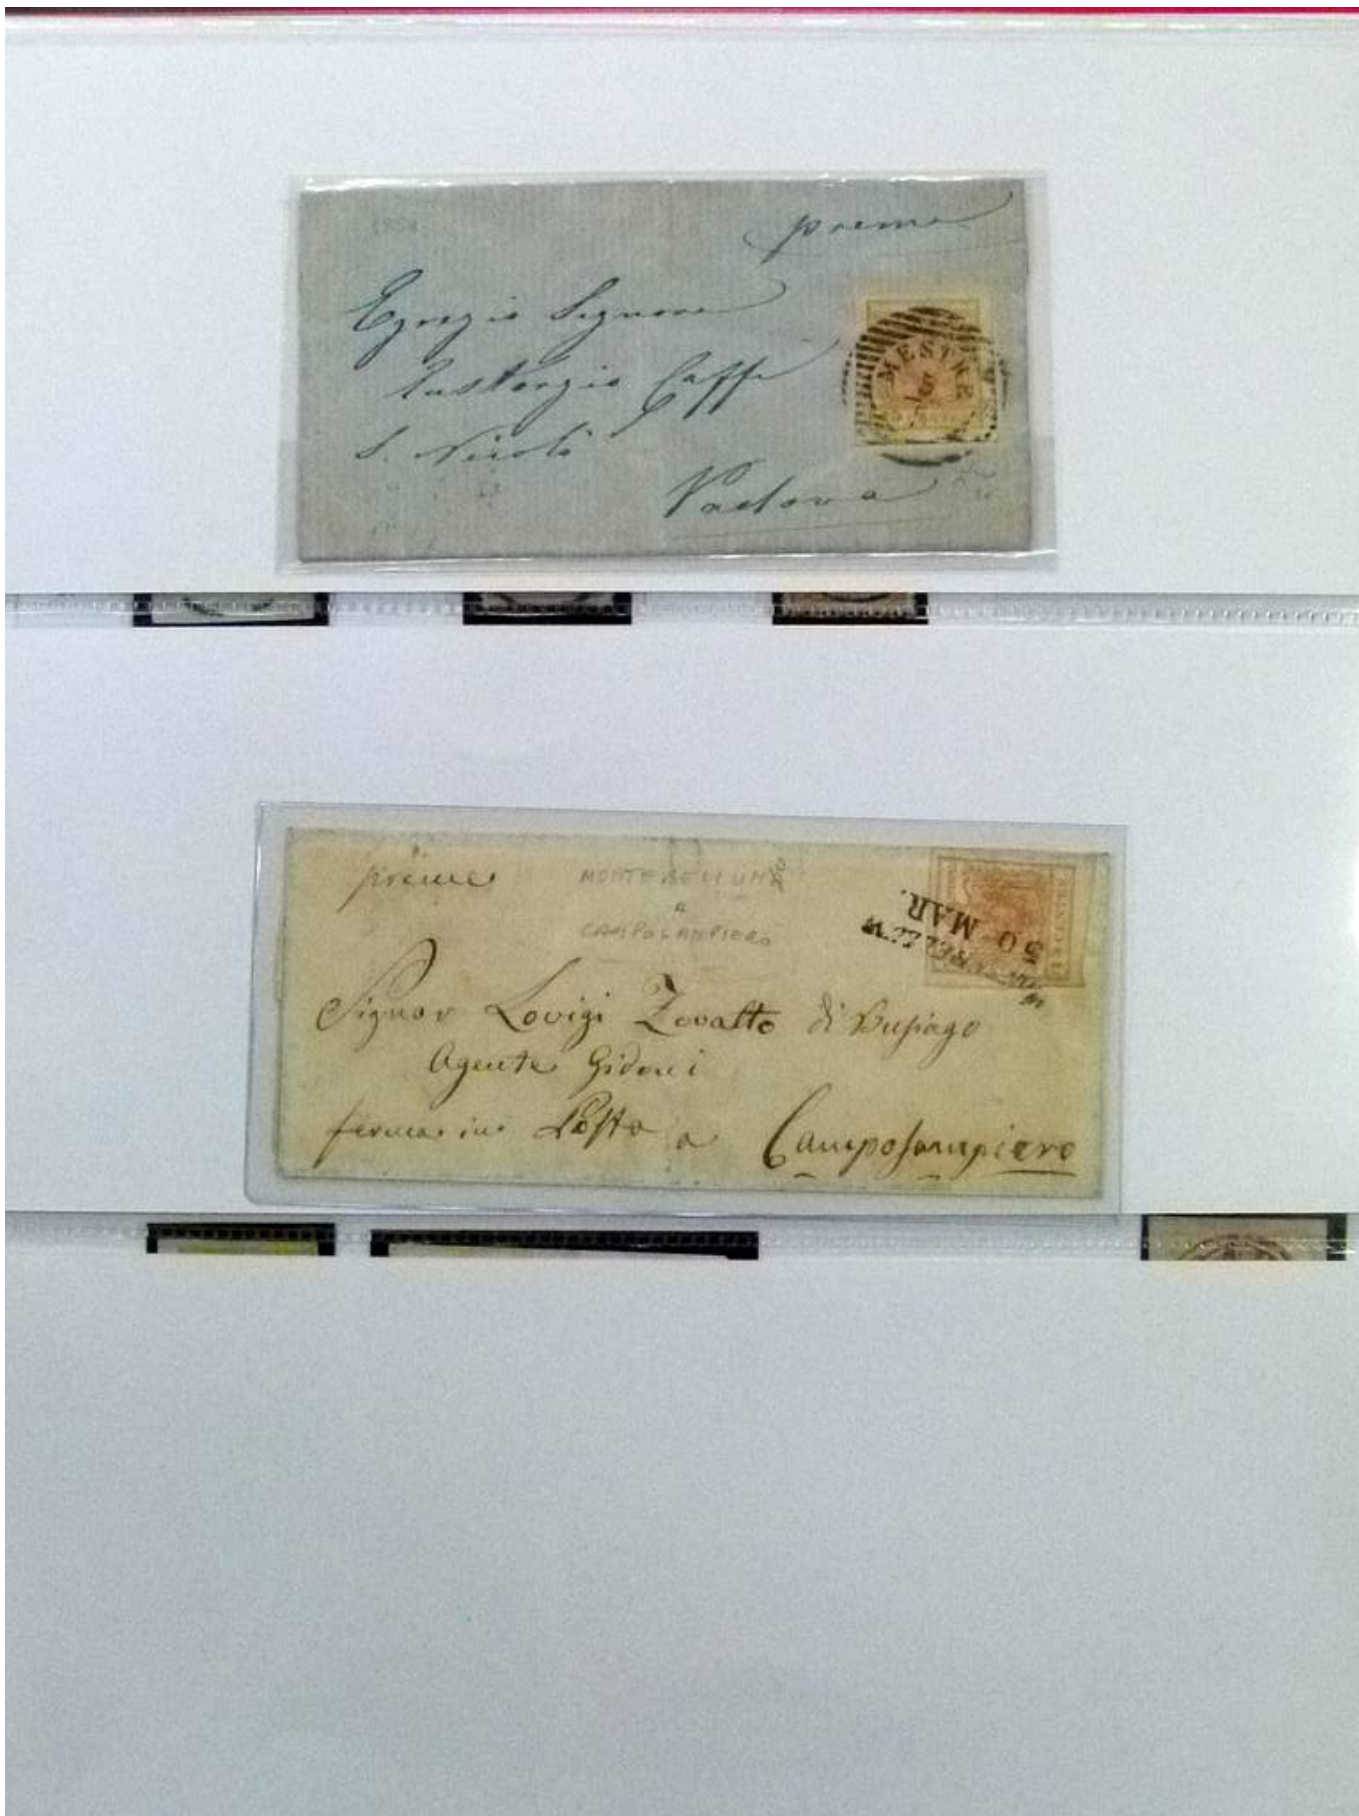 preme
Egregio Signore
Eustorgio Caffi
S. Nicolò
Padova
MESTRE
5
preme
MONTEBELLUNA
A
CAMPOSAMPIERO
30 MAR.
Signor Lovigi Zovatto di Busiago
Agente Gidoni
ferma in Posta a Camposampiero